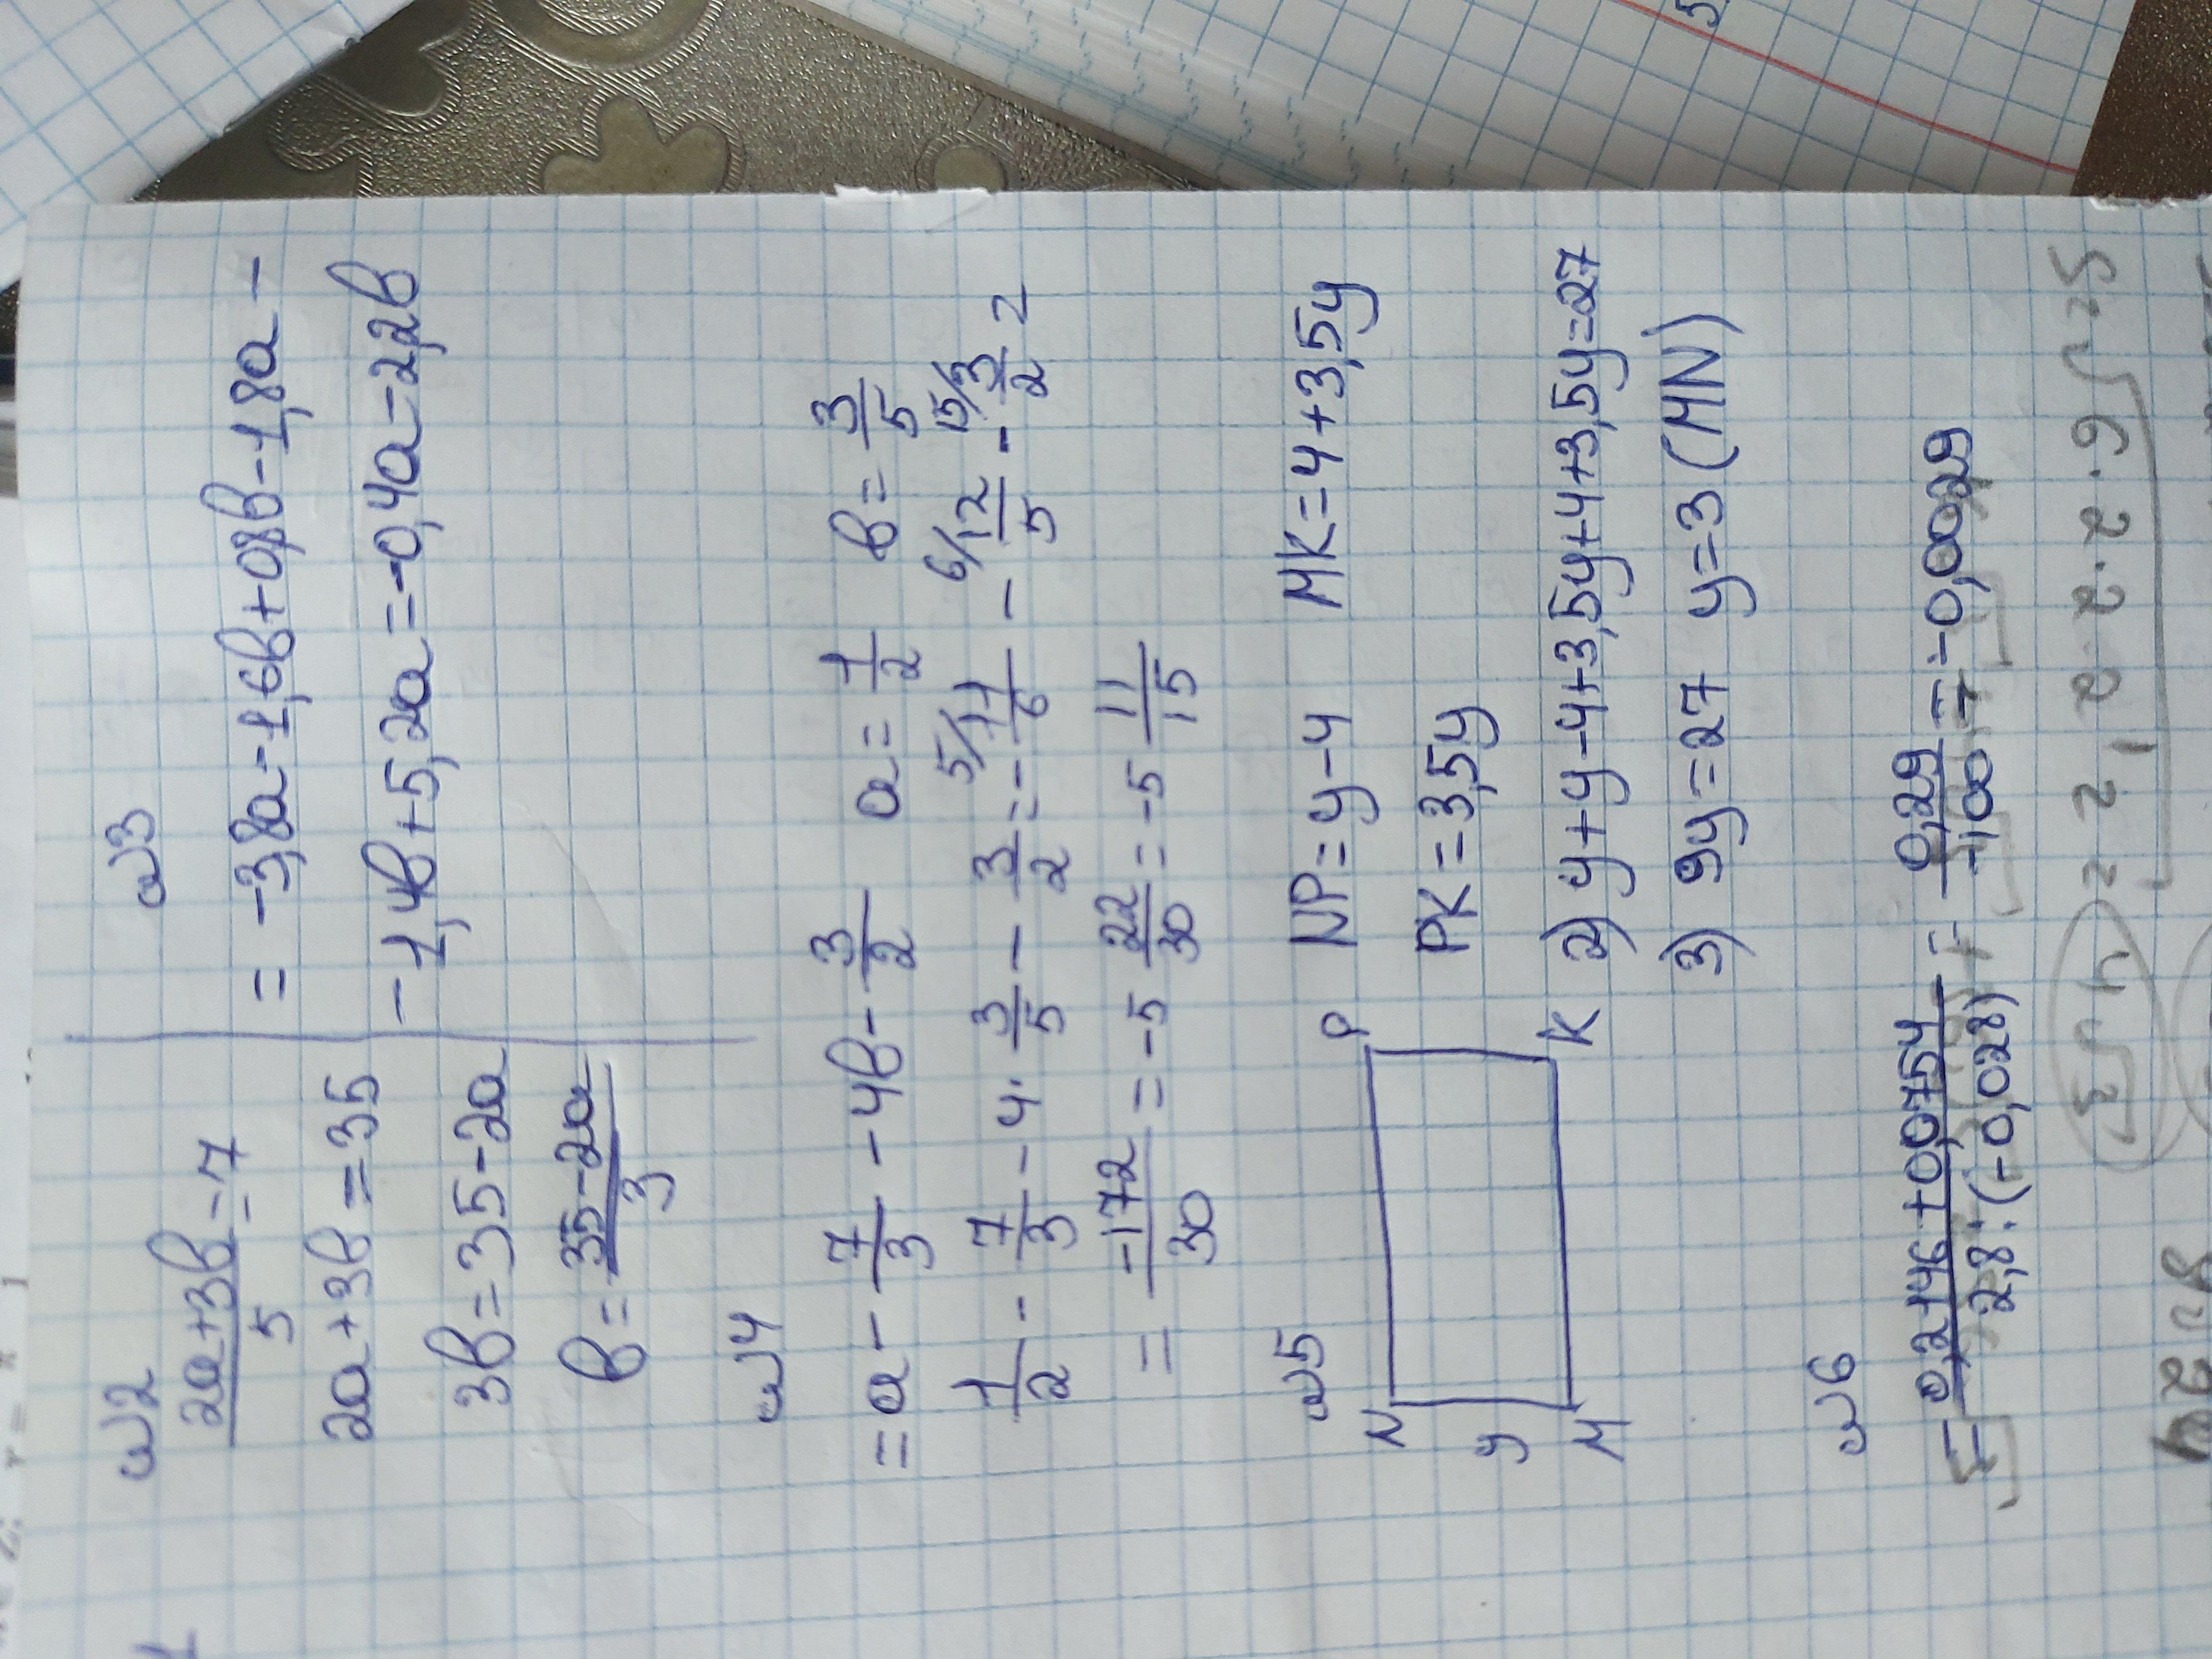 №2
(2a+3b)/5=7
2a+3b=35
3b=35-2a
b=(35-2a)/3
№3
=-3,8a-1,6b+0,8b-1,8a-
-1,4b+5,2a=-0,4a-2,2b
№4
=a-7/3-4b-3/2 a=1/2 b=3/5
1/2-7/3-4·3/5-3/2=-5/11/6-6/12/5-15/3/2 2
=-172/30=-5 22/30=-5 11/15
№5
N P NP=y-4 MK=4+3,5y
y PK=3,5y
M K 2) y+y-4+3,5y+4+3,5y=27
3) 9y=27 y=3 (MN)
№6
=(0,2146+0,0754)/(2,8:(-0,028))=0,29/-100=-0,0029